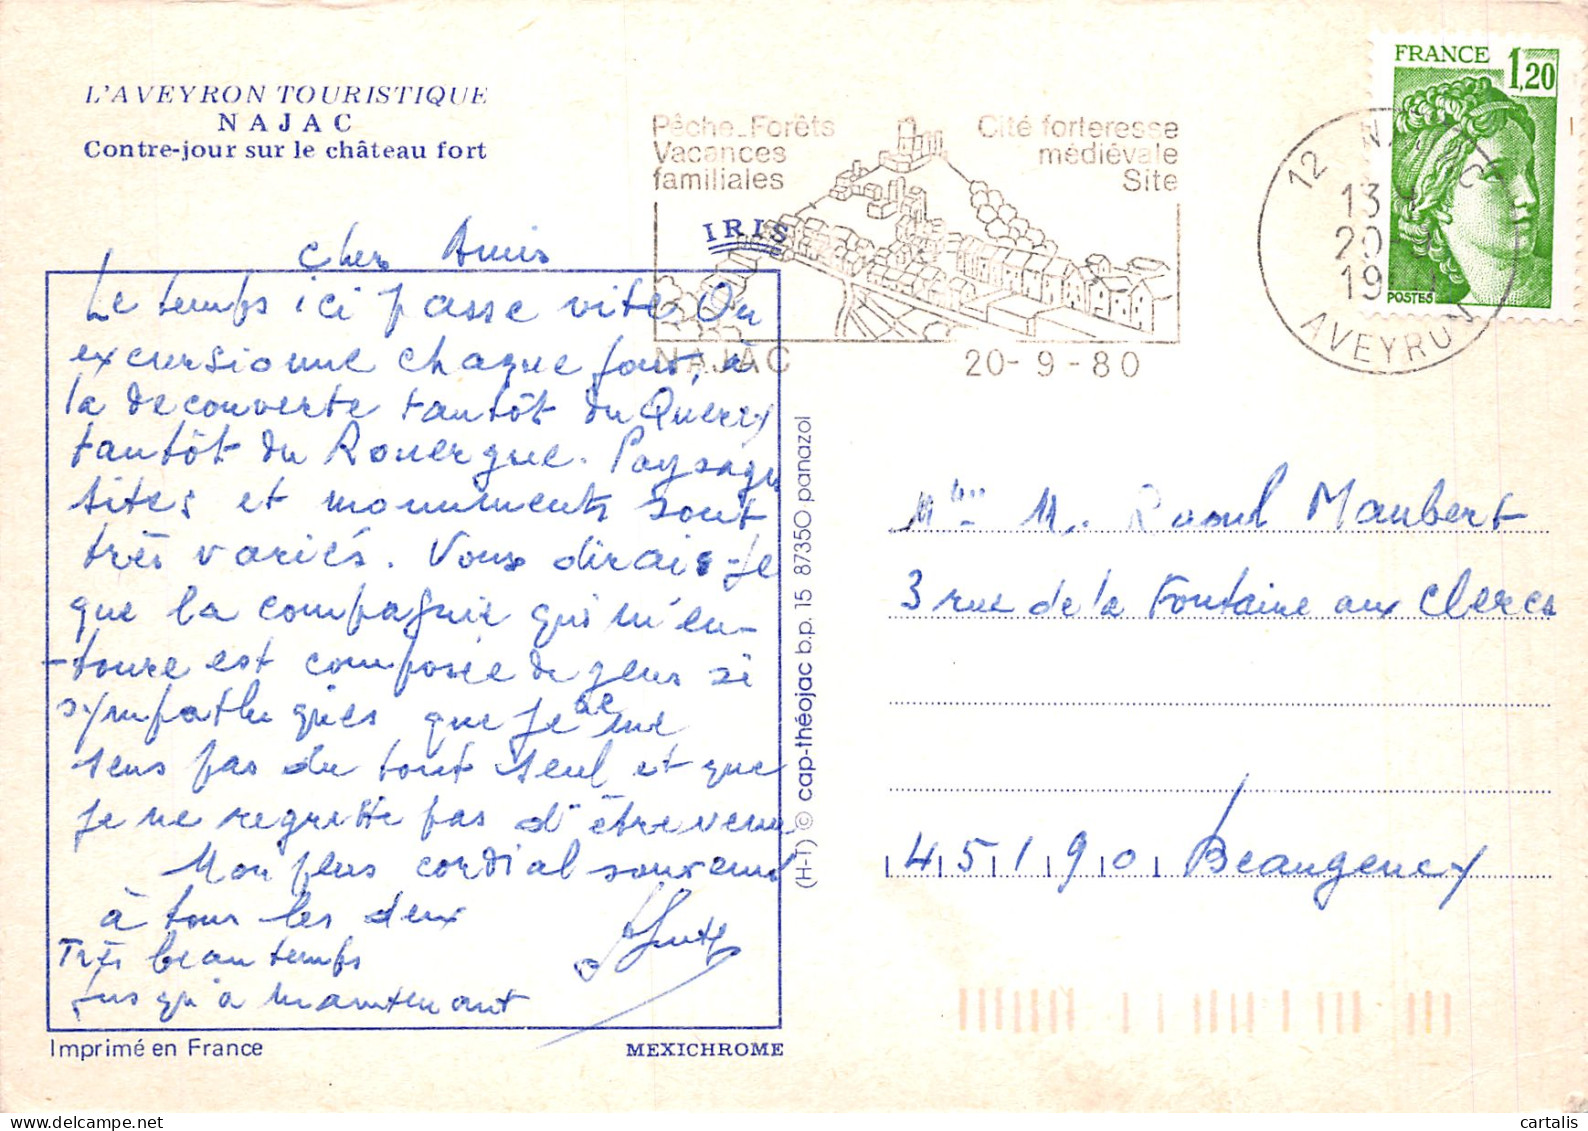 L'AVEYRON TOURISTIQUE
NAJAC
Contre-jour sur le château fort
Pêche_Forêts
Vacances
familiales
Cité forteresse
médiévale
Site
IRIS
NAJAC
20-9-80
FRANCE 1,20
POSTES
12
13
20-9
19
AVEYRON
Cher Amis
Le temps ici passe vite On
excursionne chaque jour, à
la decouverte tantôt du Quercy
tantôt du Rouergue. Paysages
sites et monuments sont
très variés. Vous dirais-je
que la compagnie qui m'en-
-toure est composée de gens si
sympathiques que je ne me
sens pas du tout seul et que
je ne regrette pas d'être venu
Mon plus cordial souvenir
à tous les deux
Très beau temps
jusqu'à maintenant
Imprimé en France
MEXICHROME
(H-T) © cap-théojac b.p. 15 87350 panazol
Mme M. Raoul Maubert
3 rue de la Fontaine aux Clercs
45190 Beaugency
cartalis